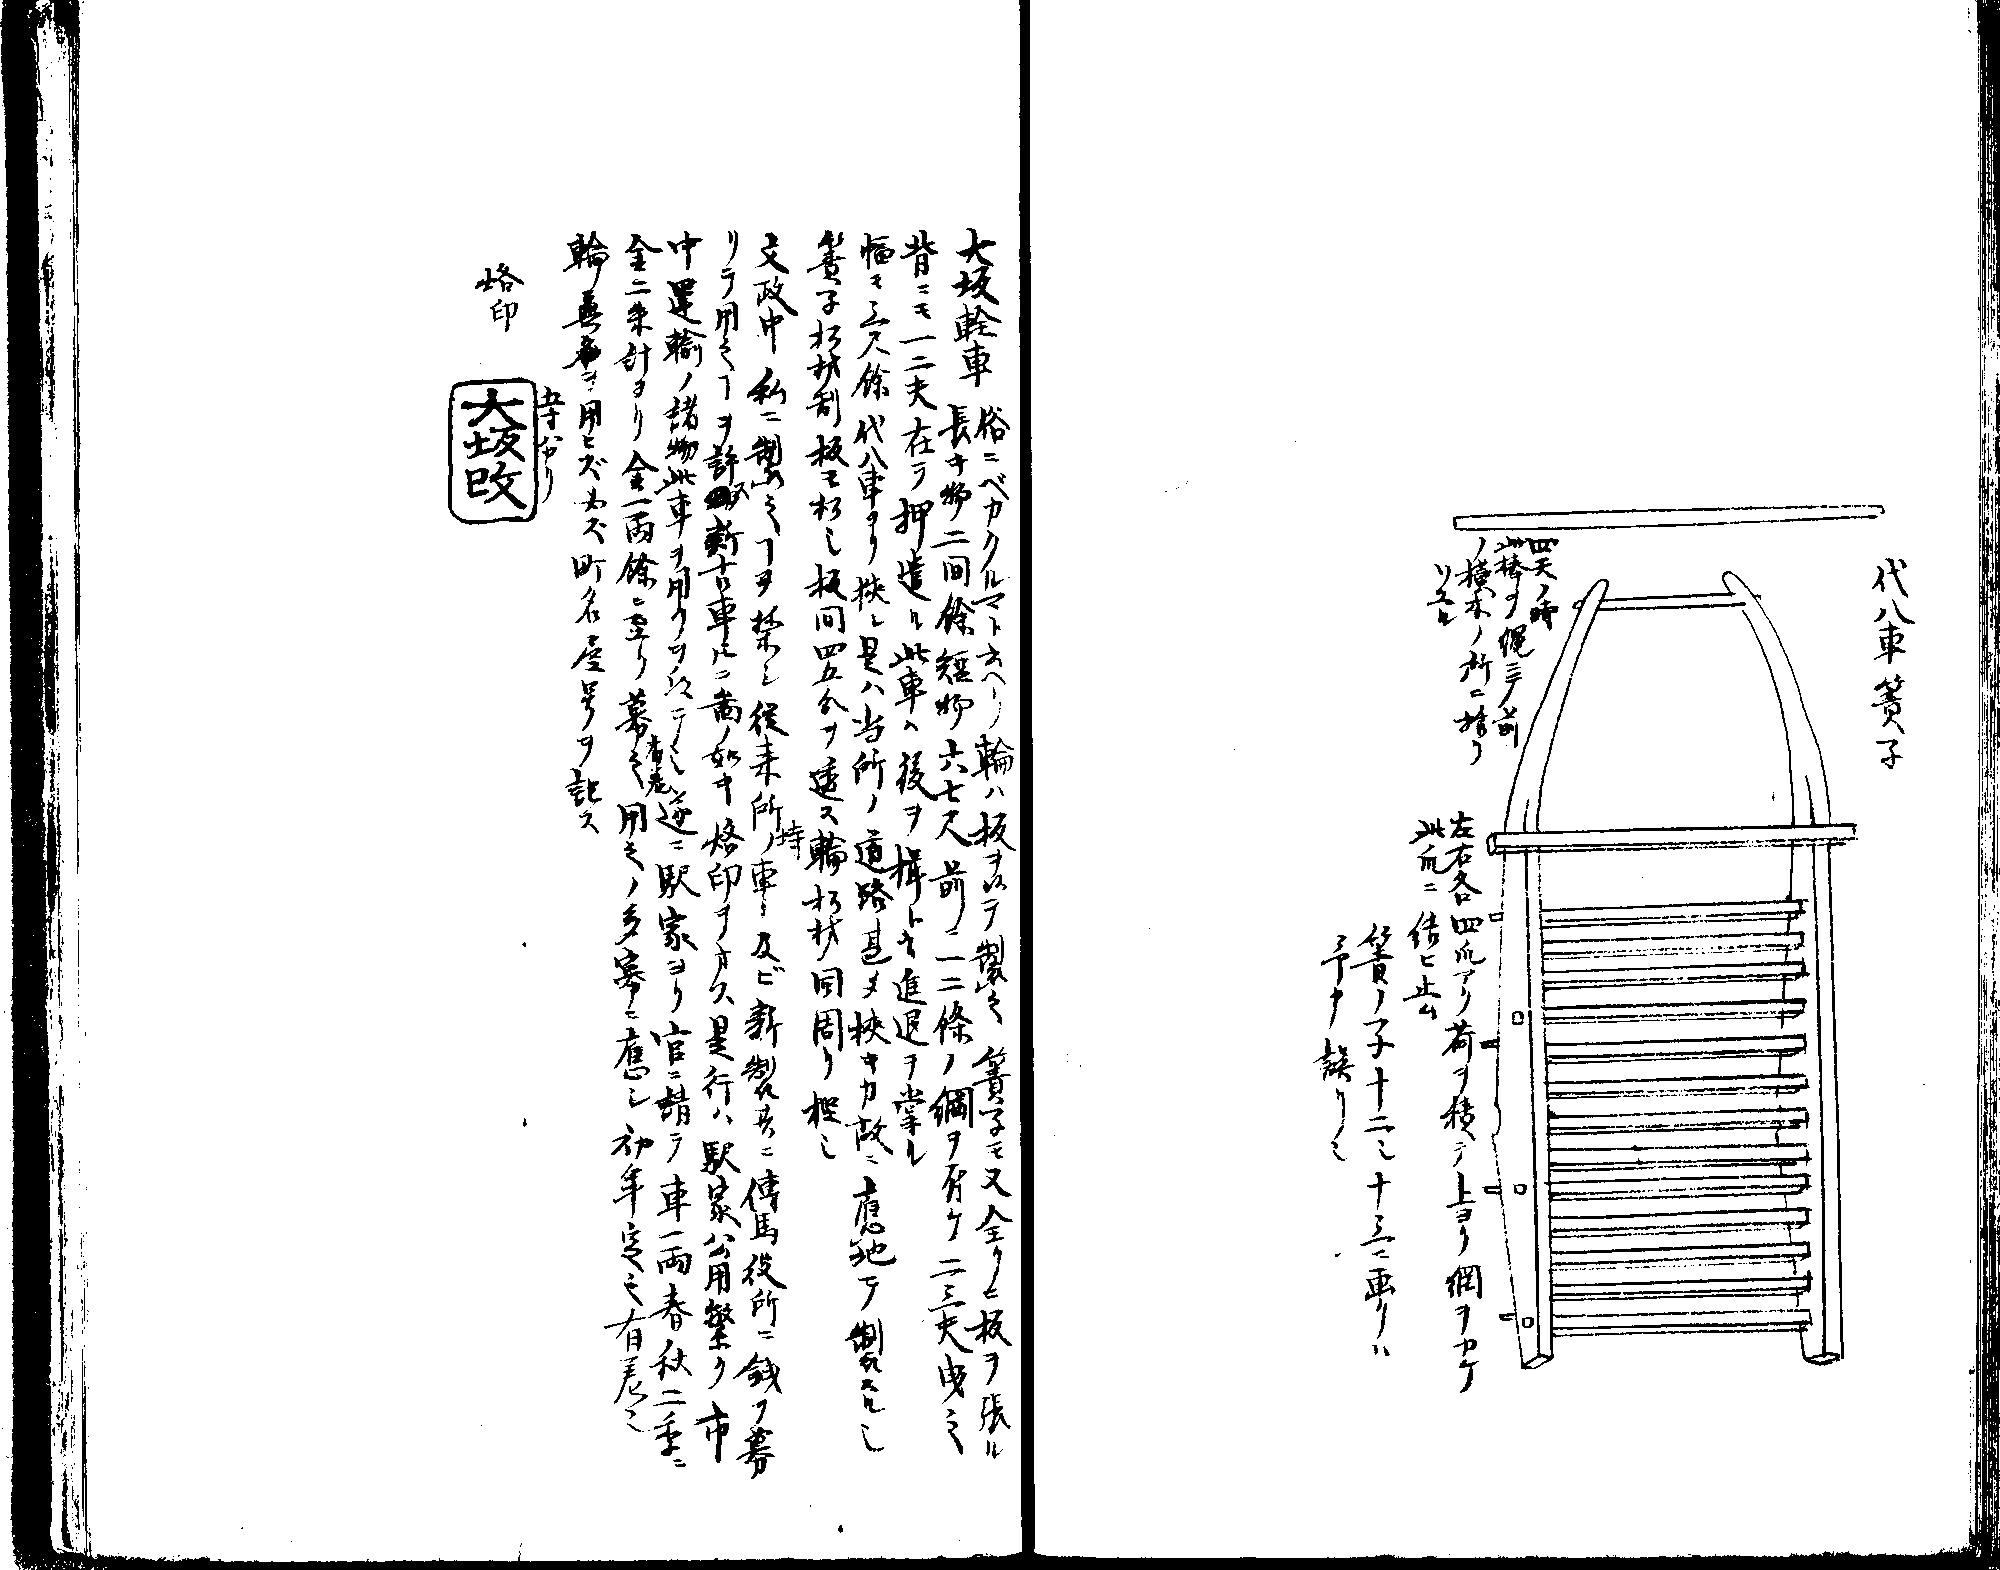 代八車簀子
四天ノ時
此棒ヲ縄ニテ前
ノ横木ノ所ニ括リ
左右各四爪アリ荷ヲ積テ上ヨリ綱ヲカケ
此爪ニ結ヒ止ム
簀ノ子十二也十三ニ画クハ
予カ誤リ也
大坂軽車 俗ニベカクルマト云ヘリ輪ハ板ヲ以テ製之簀子モ又全クヒ板ヲ張ル
長キ物二間餘短物六七尺前ニ一二條ノ綱ヲ付ケ二三夫曳之
背ニモ一二夫在テ押遣ル此車ハ後ヲ楫トシ進退ヲ掌ル
幅モ三尺餘代八車ヨリ狭シ是ハ当所ノ道路甚タ狭キカ故ニ應地テ製スル也
簀子松材割板モ松也板間四五分ヲ透ス輪松材同周リ樫也
文政中私ニ製之ヿヲ禁シ従来所持ノ車及ビ新製共ニ傳馬役所ニ銭ヲ募
リテ用之ヿヲ許ス新古車トモニ図ノ如キ烙印ヲオス是行ハ駅家公用繁ク市
中運輸ノ諸物此車ヲ用フヲ以テ也逆ニ駅家ヨリ官ニ請テ車一両春秋二季ニ
金二朱計ヨリ金一両餘ニ至リ募之用之ノ多寡ニ應シ初年定之有差也
輪無
ヲ用ヒズ
町名屋号ヲ記ス
烙印
五寸バカリ
大坂改